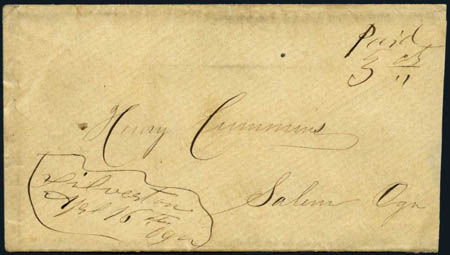 Paid
3 cts
Henry Cummins
Silverton
16th
Ogn
Salem Ogn